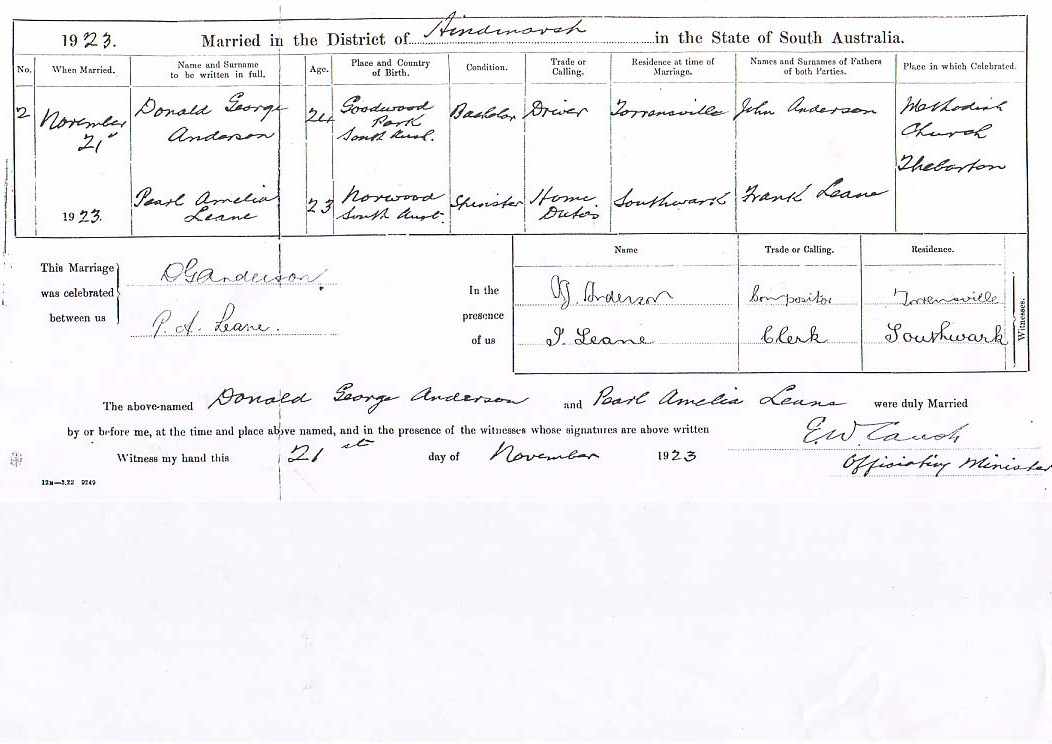 1923. Married in the District of Hindmarsh in the State of South Australia.
No. When Married. Name and Surname to be written in full. Age. Place and Country of Birth. Condition. Trade or Calling. Residence at time of Marriage. Names and Surnames of Fathers of both Parties. Place in which Celebrated.
2 November 21st Donald George Anderson 24 Goodwood Park South Aust. Bachelor Driver Torrensville John Anderson Methodist Church Thebarton
1923. Pearl Amelia Leane 23 Norwood South Aust. Spinster Home Duties Southwark Frank Leane
Name Trade or Calling. Residence.
This Marriage was celebrated between us
D G Anderson
P. A. Leane.
In the presence of us
Anderson Compositor Torrensville
I. Leane Clerk Southwark
Witnesses.
The above-named Donald George Anderson and Pearl Amelia Leane were duly Married
by or before me, at the time and place above named, and in the presence of the witnesses whose signatures are above written
E.W.
Witness my hand this 21st day of November 1923
Officiating Minister
12M—3.22 9249